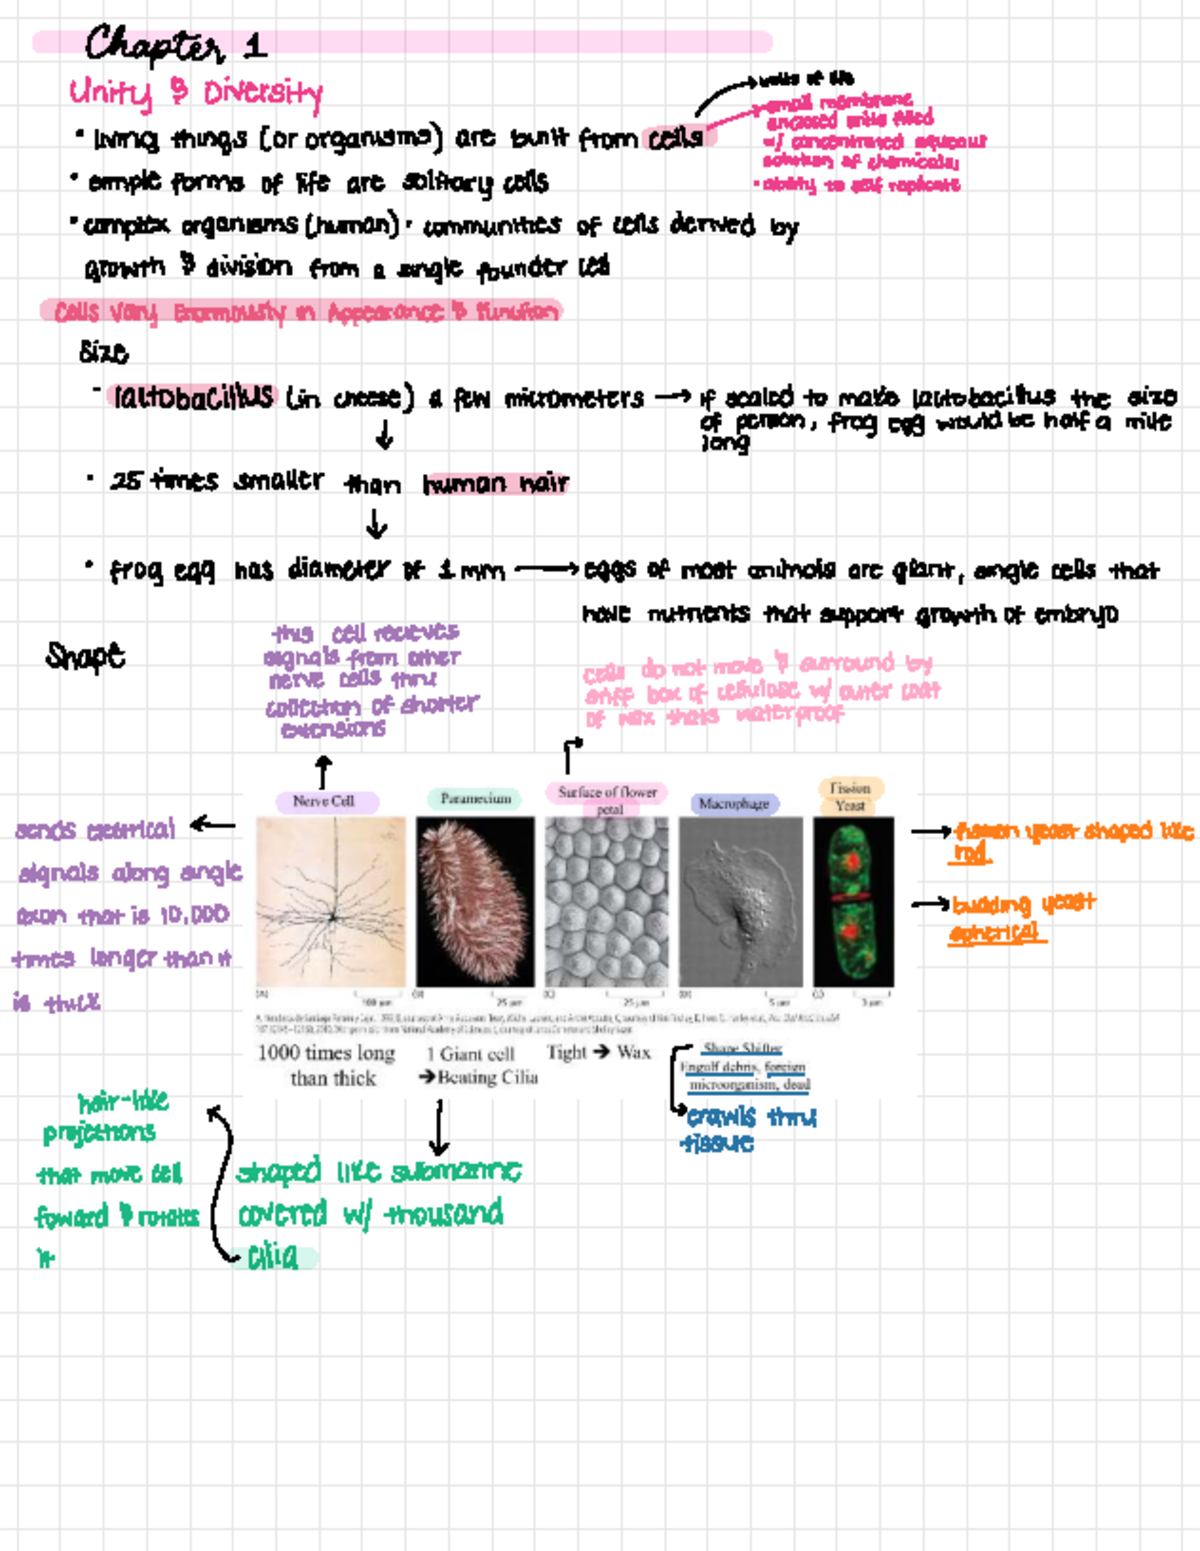 Chapter 1
Unity & Diversity
units of life
small membrane
enclosed units filled
w/ concentrated aqueous
solution of chemicals
• ability to self replicate
• living things (or organisms) are built from cells
• simple forms of life are solitary cells
• complex organisms (human) · communities of cells derived by
growth & division from a single founder cell
Cells Vary Enormously in Appearance & Function
Size
- lactobacillus (in cheese) a few micrometers → if scaled to make lactobacillus the size
of person, frog egg would be half a mile
long
↓
• 25 times smaller than human hair
↓
• frog egg has diameter of 1mm → eggs of most animals are giant, single cells that
have nutrients that support growth of embryo
Shape
this cell recieves
signals from other
nerve cells thru
collection of shorter
extensions
cells do not move & surround by
stiff box of cellulose w/ outer coat
of wax thats waterproof
Nerve Cell
Paramecium
Surface of flower
petal
Macrophage
Fission
Yeast
sends electrical
signals along single
axon that is 10,000
times longer than it
is thick
fission yeast shaped like
rod.
budding yeast
spherical
100 µm
25 µm
25 µm
5 µm
3 µm
1000 times long
than thick
1 Giant cell
→Beating Cilia
Tight → Wax
Shape Shifter
Engulf debris, foreign
microorganism, dead
crawls thru
tissue
hair-like
projections
that move cell
foward & rotates
it
shaped like submarine
covered w/ thousand
cilia